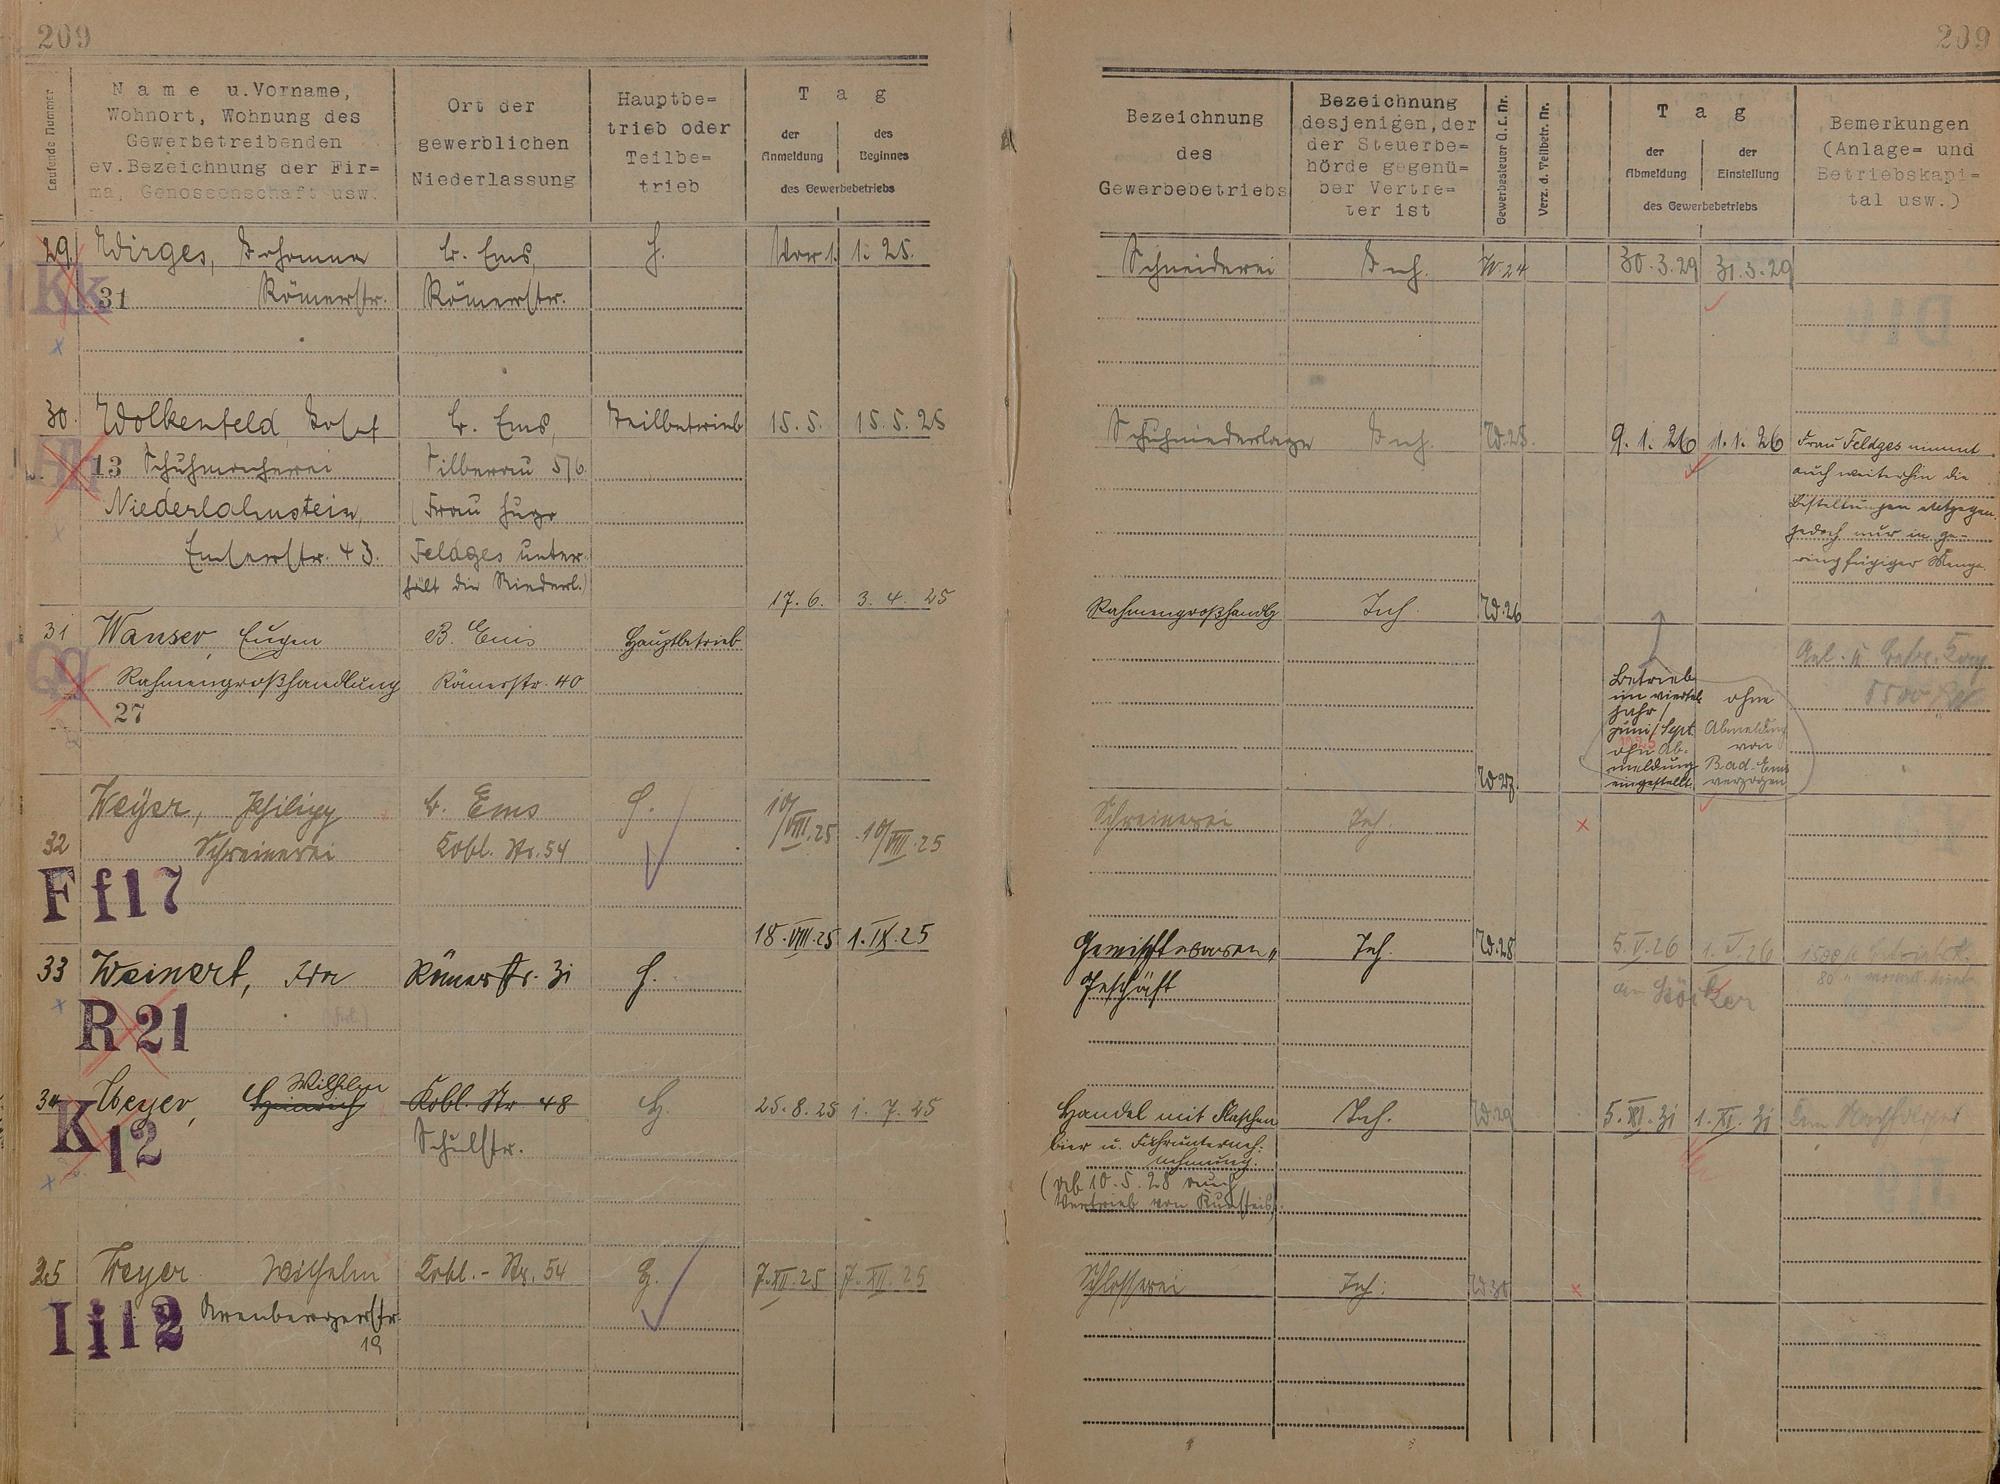 209
209
Laufende Nummer
Name u.Vorname,
Wohnort, Wohnung des
Gewerbetreibenden
ev.Bezeichnung der Fir=
ma, Genossenschaft usw.
Ort der
gewerblichen
Niederlassung
Hauptbe=
trieb oder
Teilbe=
trieb
Tag
der
Anmeldung
des
Beginnes
des Gewerbebetriebs
Bezeichnung
des
Gewerbebetriebs
Bezeichnung
desjenigen, der
der Steuerbe=
hörde gegenü=
ber Vertre=
ter ist
Gewerbesteuer Ü.L.Nr.
Verz. d. Teilbetr. Nr.
Tag
der
Abmeldung
der
Einstellung
des Gewerbebetriebs
Bemerkungen
(Anlage= und
Betriebskapi=
tal usw.)
29. Wirges, Johanna B. Ems, H. Vor 1. 1. 25. Schneiderei Inh. W 24 30.3.29 31.3.29
Kk 31 Römerstr. Römerstr.
30. Wolkenfeld, Josef B. Ems, Teilbetrieb 15.5. 15.5.25 Schuhniederlage Inh. W.25. 9.1.26 1.1.26 Frau Feldges nimmt
13 Schuhmacherei Silberau 5/6. auch weiterhin die
Niederlahnstein, (Frau Hugo Bestellungen entgegen,
Emserstr. 43. Feldges unter- jedoch nur in ge-
hält die Niederl.) ringfügiger Menge.
17.6. 3.4.25 Rahmengroßhandlg Inh. W.26
31 Wanser, Eugen B. Ems Hauptbetrieb
Qq Rahmengroßhandlung Römerstr. 40
27
Betrieb
im viertel
jahr
Juni/Sept.
1925
ohne Ab-
meldung
eingestellt.
ohne
Abmeldung
von
Bad-Ems
verzogen
W.27.
Weyer, Philipp B. Ems H. 10/VIII.25 10/VIII.25 Schreinerei Inh.
32 Schreinerei Cobl. Str. 54
Ff17
18.VIII.25 1.IX.25 Gemischtwaren„ Inh. W.28 5.V.26 1.V.26
33 Weinert, Ida Römerstr. 31 H. Geschäft
R 21
34 Weyer, Heinrich Wilhelm Kobl. Str 48 H. 25.8.25 1.7.25 Handel mit Flaschen Inh. W.29 5.XI.31 1.XI.31
K 12 Schulstr. bier u. Fuhrunterneh-
nehmung.
(ab 10.5.28 auch
Vertrieb von Kunsteis)
35 Weyer Wilhelm Kobl.-Str. 54 H. 7.XII.25 7.XII.25 Schlosserei Inh. W.30
Ii12 Arenbergerstr.
19